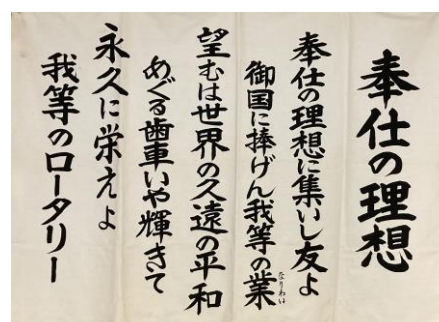 奉仕の理想
奉仕の理想に集いし友よ
御国に捧げん我等の業
なりわい
望むは世界の久遠の平和
めぐる歯車いや輝きて
永久に栄えよ
我等のロータリー